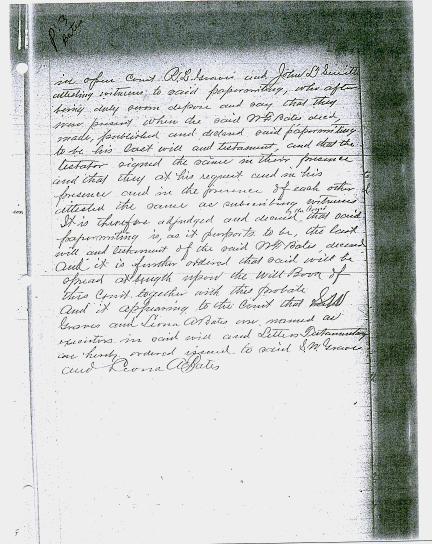 P 3
Bates
in office Court R. L. Graves and John D. Smith
attesting witness to said paperwriting, who after
being duly sworn depose and say that they
were present when the said W. G. Bates decd,
made, published and declared said paperwriting
to be his last will and testament, and that the
testator signed the same in their presence
and that they at his request and in his
presence and in the presence of each other
attested the same as subscribing witnesses
It is therefore adjudged and decreed by the Court that said
paperwriting is, as it purports to be, the last
will and testament of the said W. G. Bates deceased
And it is further ordered that said will be
spread at length upon the Will Book of
this Court together with this probate
And it appearing to the Court that S. W.
Graves and Leona A Bates are named as
executors in said will and Letters Testamentary
are hereby ordered issued to said S. W. Graves
and Leona A Bates